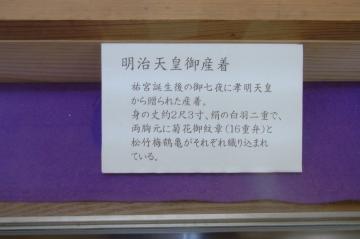 明治天皇御産着
祐宮誕生後の御七夜に孝明天皇
から贈られた産着。
身の丈約2尺3寸、絹の白羽二重で、
両胸元に菊花御紋章(16重弁)と
松竹梅鶴亀がそれぞれ織り込まれ
ている。